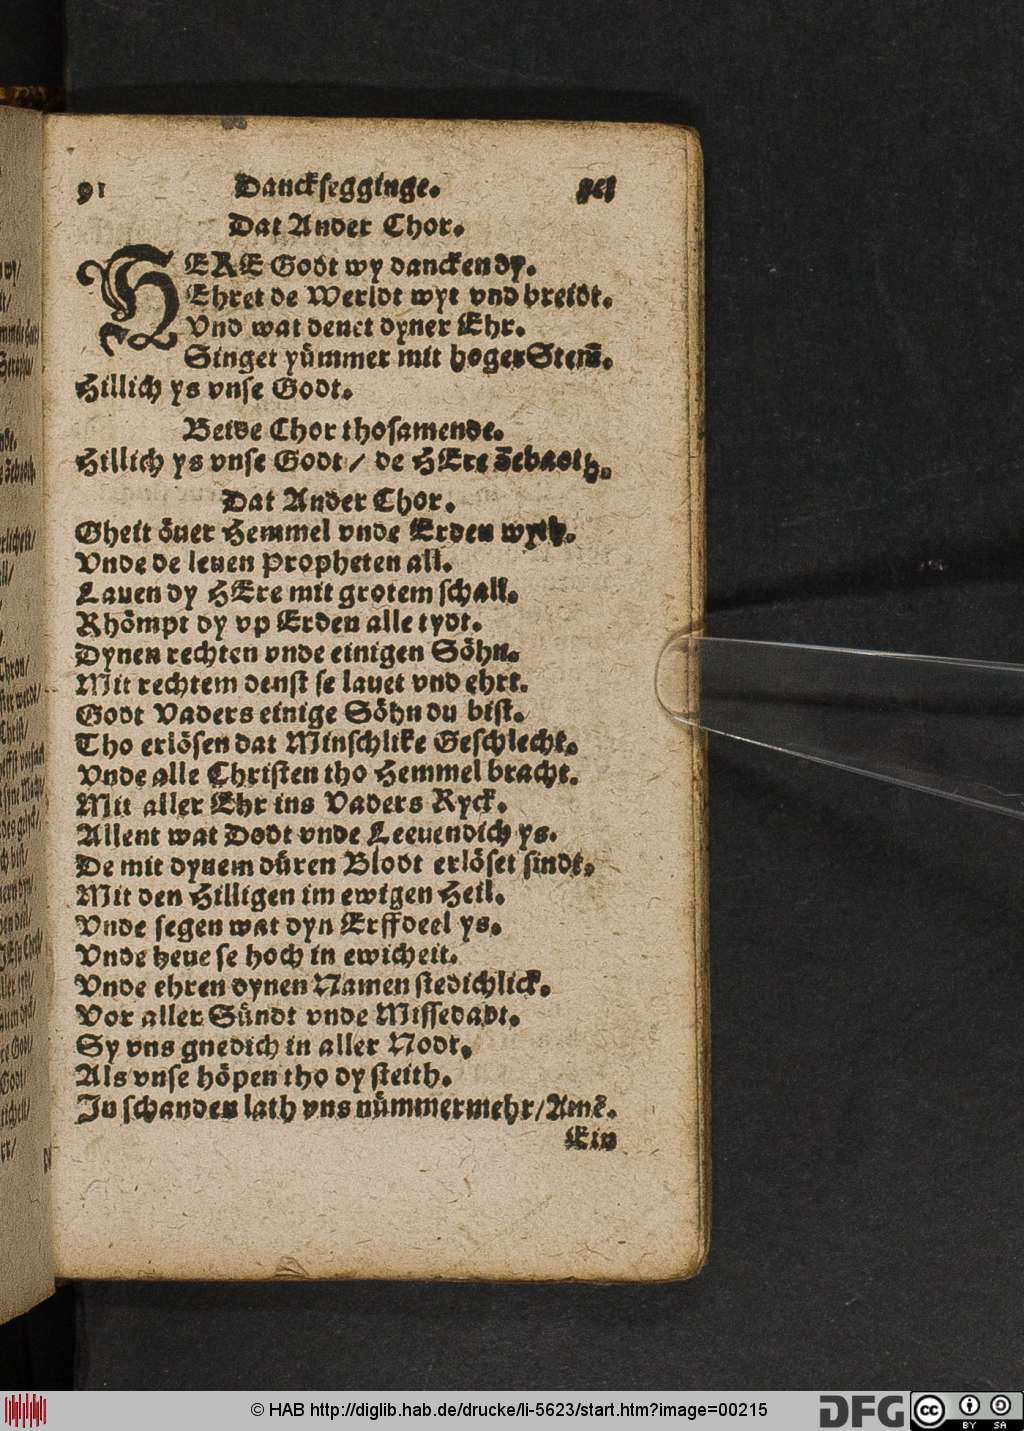 91 Danckſegginge. xci
Dat Ander Chor.
HERE Godt wy dancken dy.
Ehret de Werldt wyt vnd breidt.
Vnd wat denet dyner Ehr.
Singet yümmer mit hoger Stem̄.
Hillich ys vnſe Godt.
Beide Chor thoſamende.
Hillich ys vnſe Godt / de HEre Zebaoth.
Dat Ander Chor.
Gheit öuer Hemmel vnde Erden wyth.
Vnde de leuen Propheten all.
Lauen dy HEre mit grotem ſchall.
Rhömpt dy vp Erden alle tydt.
Dynen rechten vnde einigen Söhn.
Mit rechtem denſt ſe lauet vnd ehrt.
Godt Vaders einige Söhn du biſt.
Tho erlöſen dat Minſchlike Geſchlecht.
Vnde alle Chriſten tho Hemmel bracht.
Mit aller Ehr ins Vaders Ryck.
Allent wat Dodt vnde Leeuendich ys.
De mit dynem düren Blodt erlöſet ſindt.
Mit den Hilligen im ewigen Heil.
Vnde ſegen wat dyn Erffdeel ys.
Vnde heue ſe hoch in ewicheit.
Vnde ehren dynen Namen ſtedichlick.
Vor aller Sündt vnde Miſſedadt.
Sy vns gnedich in aller Nodt.
Als vnſe höpen tho dy ſteith.
In ſchanden lath vns nümmermehr/Amē.
Ein
© HAB http://diglib.hab.de/drucke/li-5623/start.htm?image=00215
DFG
CC BY SA